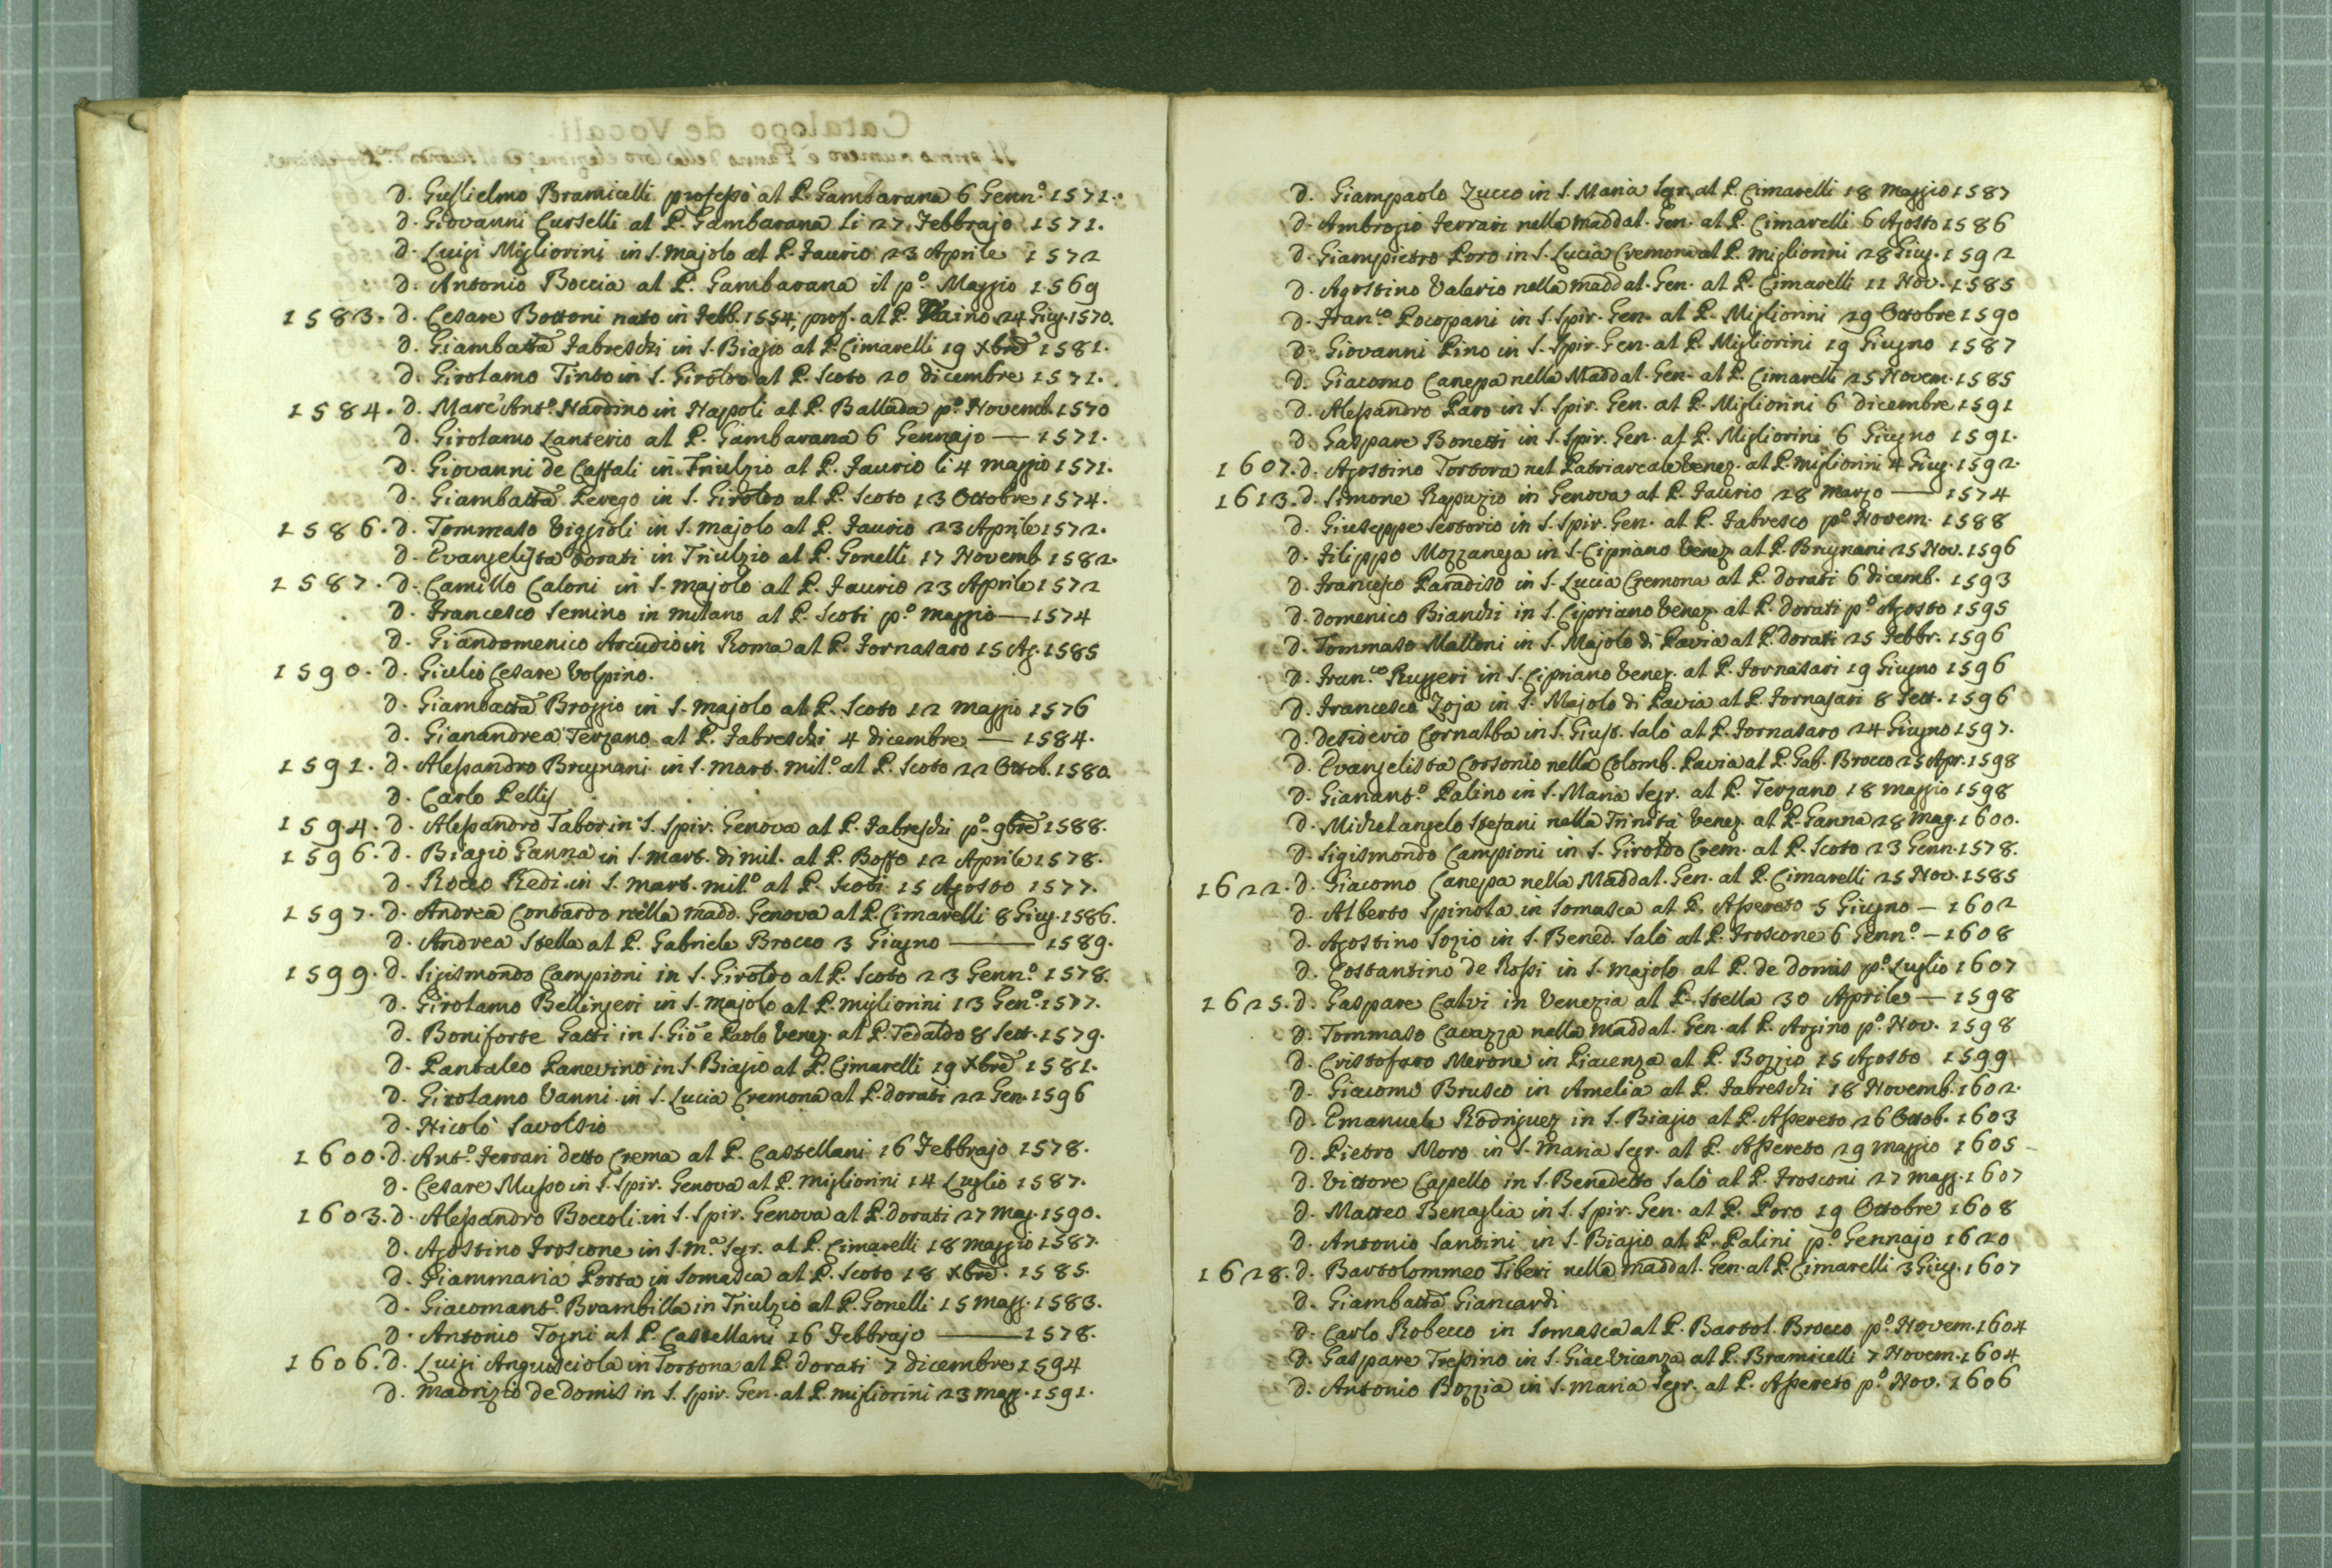 D. Guglielmo Bramicelli professò al P. Gambarana 6 Genn.o 1571.
D. Giovanni Curselli al P. Gambarana li 27 Febbrajo 1571.
D. Luigi Migliorini in S. Majolo al P. Faurio 23 Aprile 1572
D. Antonio Boccia al P. Gambarana il p.o Maggio 1569
1583. D. Cesare Bottoni nato in Febb. 1554, prof. al P. 24 Giug. 1570.
D. Giambatta Fabreschi in S. Biagio al P. Cimarelli 19 Xbre 1581.
D. Girolamo Tinto in S. Giroldo al P. Scoto 20 dicembre 1571.
1584. D. Marc'Ant.o Nardino in Napoli al P. Ballada p.o Novemb. 1570
D. Girolamo Lanterio al P. Gambarana 6 Gennajo — 1571.
D. Giovanni de Caffali in Triulzio al P. Faurio li 4 maggio 1571.
D. Giambatta Perego in S. Giroldo al P. Scoto 13 Ottobre 1574.
1586. D. Tommaso Viggioli in S. Majolo al P. Faurio 23 Aprile 1572.
D. Evangelista Dorati in Triulzio al P. Gonelli 17 Novemb. 1582.
1587. D. Camillo Caloni in S. Majolo al P. Faurio 23 Aprile 1572
D. Francesco Semino in Milano al P. Scoti p.o Maggio — 1574
D. Giandomenico Arcudio in Roma al P. Fornasaro 15 Ag. 1585
1590. D. Giulio Cesare Volpino.
D. Giambatta Broggio in S. Majolo al P. Scoto 12 Maggio 1576
D. Gianandrea Terzano al P. Fabreschi 4 dicembre — 1584.
1591. D. Alessandro Brugnani in S. Mart. Mil.o al P. Scoto 22 Ottob. 1580.
D. Carlo Pellij
1594. D. Alessandro Tabor in S. Spir. Genova al P. Fabreschi p.o 9bre 1588.
1596. D. Biagio Ganna in S. Mart. di Mil. al P. Boffo 12 Aprile 1578.
D. Rocco Redi in S. Mart. Mil.o al P. Scoti 15 Agosto 1577.
1597. D. Andrea Contardo nella Madd. Genova al P. Cimarelli 8 Giug. 1586.
D. Andrea Stella al P. Gabriele Brocco 3 Giugno — 1589.
1599. D. Sigismondo Campioni in S. Giroldo al P. Scoto 23 Genn.o 1578.
D. Girolamo Bellingeri in S. Majolo al P. Migliorini 13 Gen.o 1577.
D. Boniforte Gatti in S. Gio e Paolo Venez. al P. Tedaldo 8 Sett. 1579.
D. Pantaleo Panevino in S. Biagio al P. Cimarelli 19 Xbre 1581.
D. Girolamo Vanni in S. Lucia Cremona al P. Dorati 22 Gen. 1596
D. Nicolò Savolsio
1600. D. Ant.o Ferrari detto Crema al P. Castellani 16 Febbrajo 1578.
D. Cesare Musso in S. Spir. Genova al P. Migliorini 14 Luglio 1587.
1603. D. Alessandro Boccoli in S. Spir. Genova al P. Dorati 27 Mag. 1590.
D. Agostino Froscone in S. M.a Segr. al P. Cimarelli 18 Maggio 1587.
D. Giammaria Porta in Somasca al P. Scoto 18 Xbre. 1585.
D. Giacomant.o Brambilla in Triulzio al P. Gonelli 15 Magg. 1583.
D. Antonio Togni al P. Castellani 16 Febbrajo — 1578.
1606. D. Luigi Angusciola in Tortona al P. Dorati 7 dicembre 1594
D. Maurizio de Domis in S. Spir. Gen. al P. Migliorini 23 Magg. 1591.
D. Giampaolo Zucco in S. Maria Segr. al P. Cimarelli 18 Maggio 1587
D. Ambrogio Ferrari nella Maddal. Gen. al P. Cimarelli 6 Agosto 1586
D. Giampietro Poro in S. Lucia Cremona al P. Migliorini 28 Giug. 1592
D. Agostino Valerio nella Maddal. Gen. al P. Cimarelli 11 Nov. 1585
D. Fran.co Pocopani in S. Spir. Gen. al P. Migliorini 29 Ottobre 1590
D. Giovanni Pino in S. Spir. Gen. al P. Migliorini 19 Giugno 1587
D. Giacomo Canepa nella Maddal. Gen. al P. Cimarelli 25 Novem. 1585
D. Alessandro Paro in S. Spir. Gen. al P. Migliorini 6 dicembre 1591
D. Gaspare Bonetti in S. Spir. Gen. al P. Migliorini 6 Giugno 1591.
1607. D. Agostino Tortora nel Patriarcale Venez. al P. Migliorini 4 Giug. 1592.
1613. D. Simone Rapuzio in Genova al P. Faurio 28 Marzo — 1574
D. Giuseppe Sertorio in S. Spir. Gen. al P. Fabresco p.o Novem. 1588
D. Filippo Mozzanega in S. Cipriano Venez. al P. Brugnani 25 Nov. 1596
D. Francesco Paradiso in S. Lucia Cremona al P. Dorati 6 dicemb. 1593
D. Domenico Bianchi in S. Cipriano Venez. al P. Dorati p.o Agosto 1595
D. Tommaso Malloni in S. Majolo di Pavia al P. Dorati 25 Febbr. 1596
D. Fran.co Ruggeri in S. Cipriano Venez. al P. Fornasari 19 Giugno 1596
D. Francesco Zoja in S. Majolo di Pavia al P. Fornasari 8 Sett. 1596
D. Desiderio Cornalba in S. Gius. Salò al P. Fornasaro 24 Giugno 1597.
D. Evangelista Corsonio nella Colomb. Pavia al P. Gab. Brocco 25 Apr. 1598
D. Gianant.o Palino in S. Maria Segr. al P. Terzano 18 Maggio 1598
D. Michelangelo Stefani nella Trinità Venez. al P. Ganna 28 Mag. 1600.
D. Sigismondo Campioni in S. Giroldo Crem. al P. Scoto 23 Genn. 1578.
1622. D. Giacomo Canepa nella Maddal. Gen. al P. Cimarelli 25 Nov. 1585
D. Alberto Spinola in Somasca al P. Assereto 5 Giugno — 1602
D. Agostino Sozio in S. Bened. Salò al P. Froscone 6 Genn.o — 1608
D. Costantino de Rossi in S. Majolo al P. de Domis p.o Luglio 1607
1625. D. Gaspare Calvi in Venezia al P. Stella 30 Aprile — 1598
D. Tommaso Cavazza nella Maddal. Gen. al P. Argino p.o Nov. 1598
D. Cristoforo Merone in Piacenza al P. Bozzio 15 Agosto 1599
D. Giacomo Brusco in Amelia al P. Fabreschi 18 Novemb. 1602.
D. Emanuele Rodriguez in S. Biagio al P. Assereto 26 Ottob. 1603
D. Pietro Moro in S. Maria Segr. al P. Assereto 29 Maggio 1605
D. Vittore Capello in S. Benedetto Salò al P. Frosconi 27 Magg. 1607
D. Matteo Benaglia in S. Spir. Gen. al P. Poro 19 Ottobre 1608
D. Antonio Santini in S. Biagio al P. Palini p.o Gennajo 1620
1628. D. Bartolommeo Tiberi nella Maddal. Gen. al P. Cimarelli 3 Giug. 1607
D. Giambatta Giancardi
D. Carlo Robecco in Somasca al P. Bartol. Brocco p.o Novem. 1604
D. Gaspare Trissino in S. Giac Vicenza al P. Bramicelli 7 Novem. 1604
D. Antonio Bozzia in S. Maria Segr. al P. Assereto p.o Nov. 1606